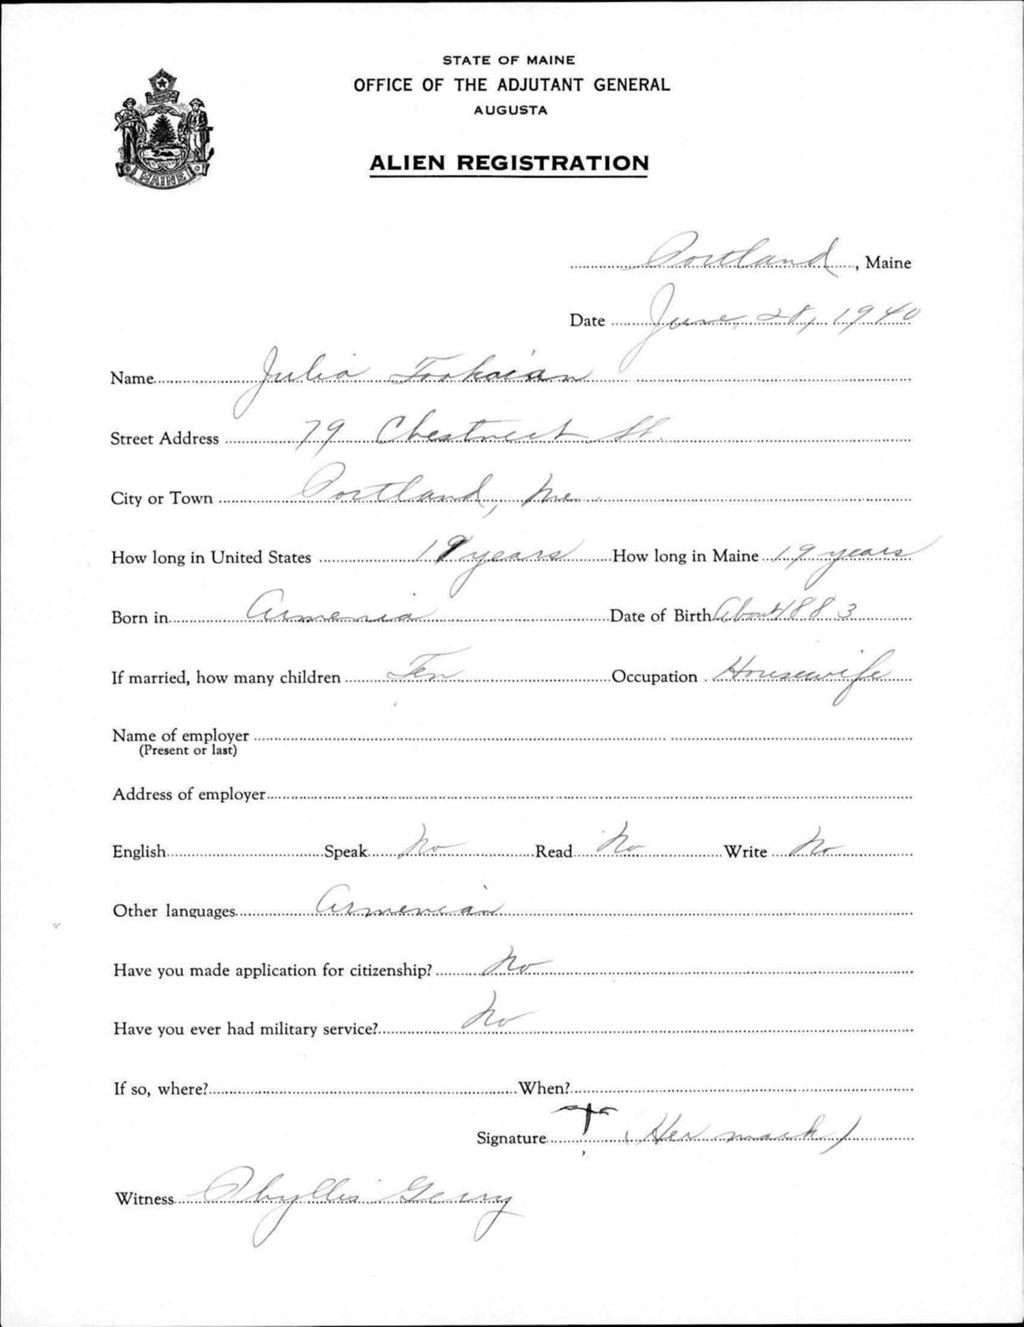 STATE OF MAINE
OFFICE OF THE ADJUTANT GENERAL
AUGUSTA
MAINE
ALIEN REGISTRATION
Portland, Maine
Date June 28, 1940
Name Julia Tookoian
Street Address 79 Chestnut St.
City or Town Portland, Me.
How long in United States 19 years How long in Maine 19 years
Born in Armenia Date of Birth About 1883
If married, how many children Ten Occupation Housewife
Name of employer
(Present or last)
Address of employer
English Speak No Read No Write No
Other languages Armenian
Have you made application for citizenship? No
Have you ever had military service? No
If so, where? When?
Signature (Her mark)
Witness Phyllis Gerry